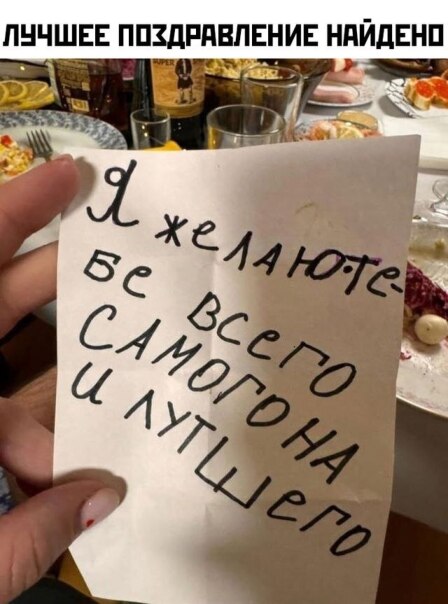 ЛУЧШЕЕ ПОЗДРАВЛЕНИЕ НАЙДЕНО
Я желаю те-
бе всего
САМОГОНА
и лутшего